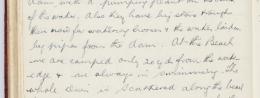 dam with a pumping plant on the
of the water. Also they have big stone troughs
their near for watering horses & the water, laid on
by pipes from the dam. At this Beach
we are camped only 20 yds from the waters
edge & are always in swimming. The
whole Divn is scattered along the beach